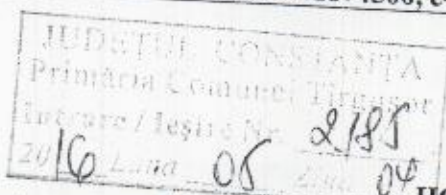 JUDEŢUL CONSTANŢA
Primăria Comunei Tîrguşor
Intrare / Ieşire Nr. 2185
2016 Luna 05 Ziua 04